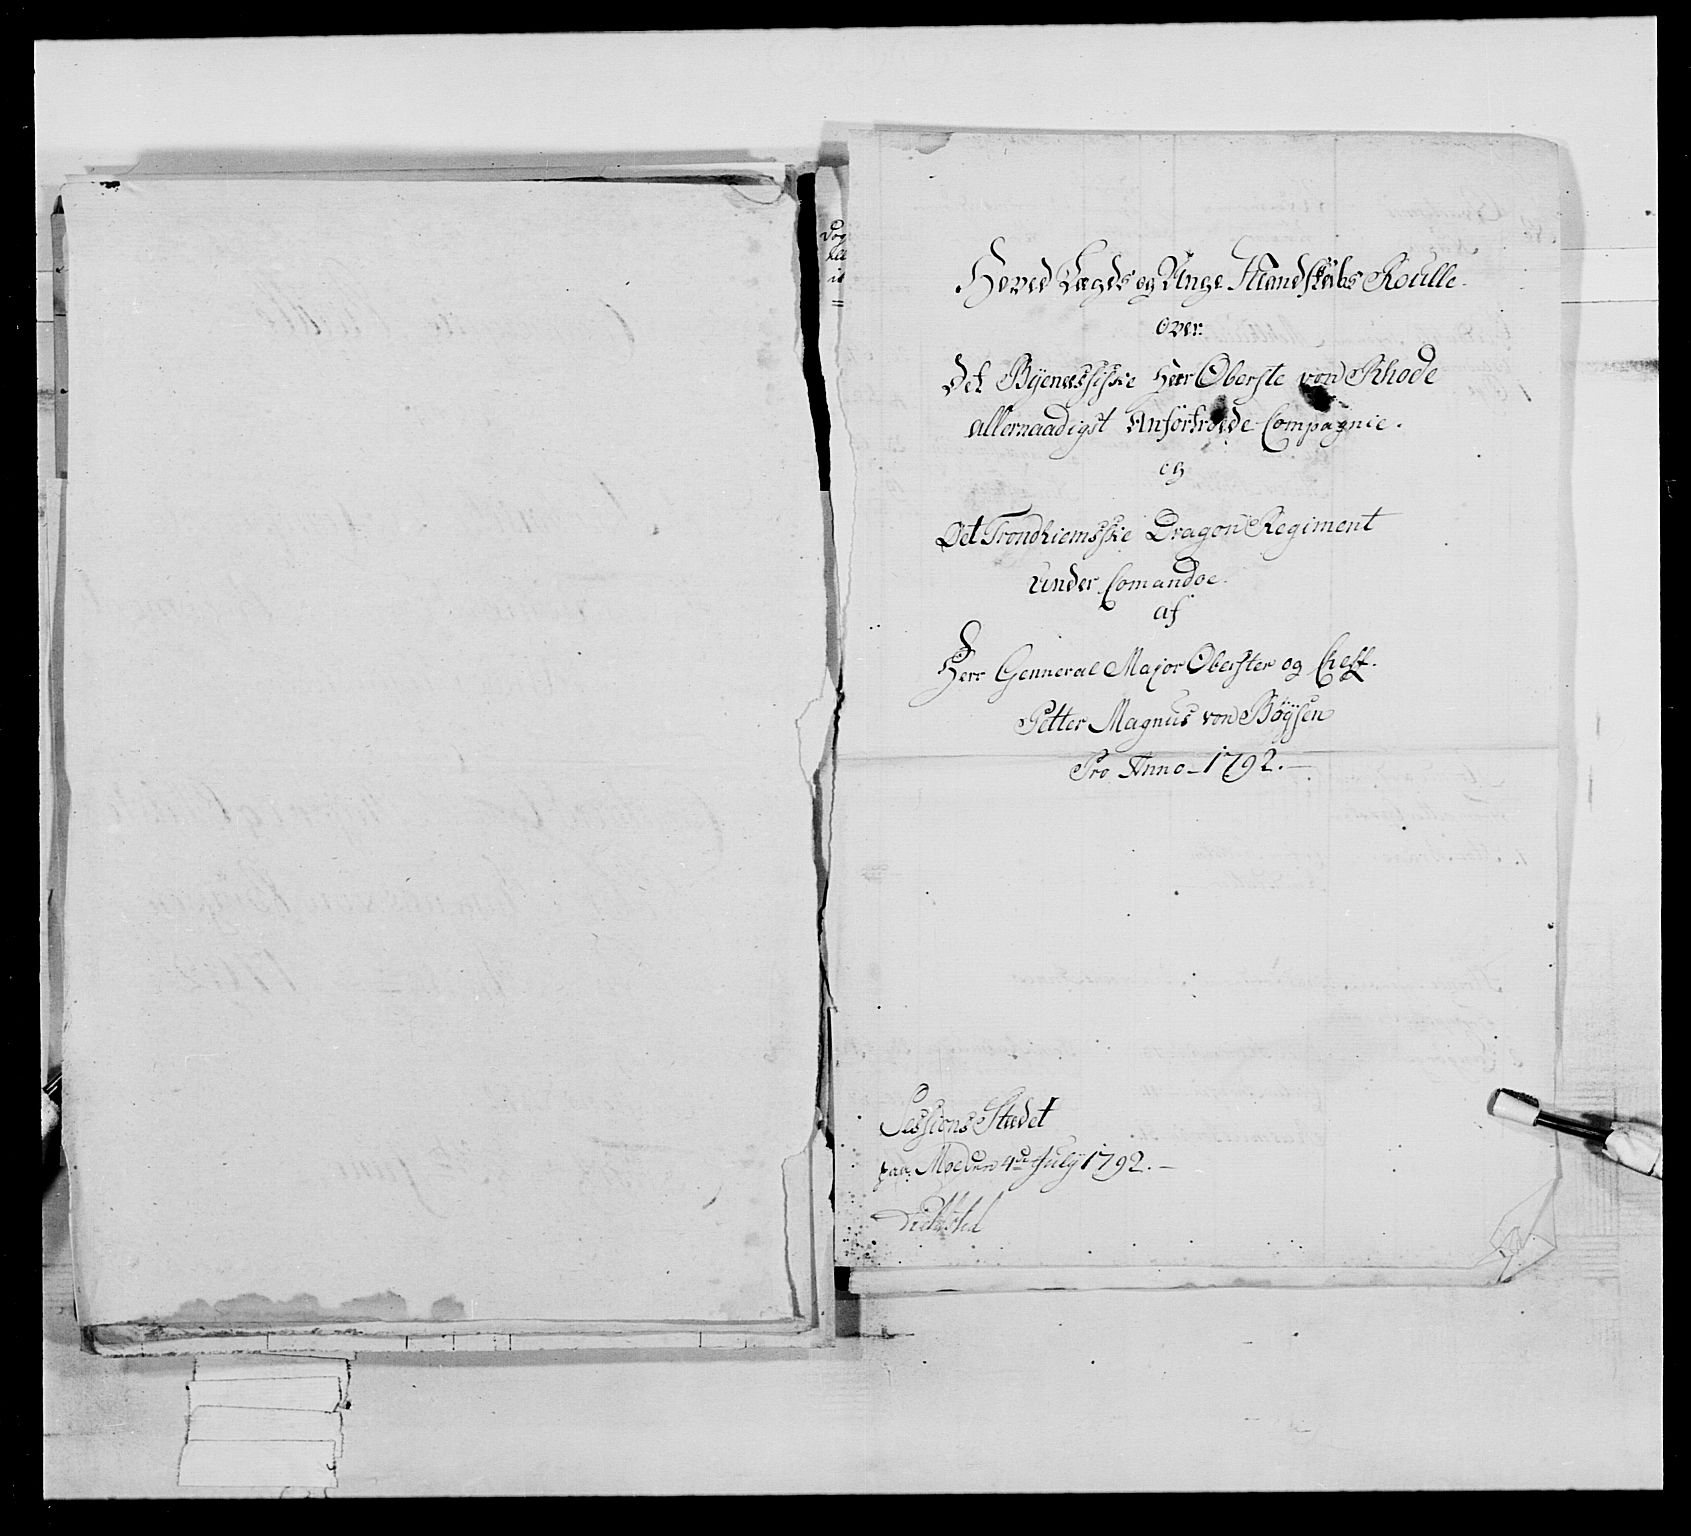 Hoved Lægds og Unge Mandskabs Roulle.
over.
Det Byenæssiske Herr Oberste von Rhode
allernaadigst Anfortroede Compagnie.
og
Det Trondhiemsske Dragon Regiment
under Comandoe.
af
Herr Genneral Major Oberster og Cheff.
Petter Magnus von Bøysen
Pro Anno 1792.
Sessions Stædet
paa Moe den 4de July 1792.